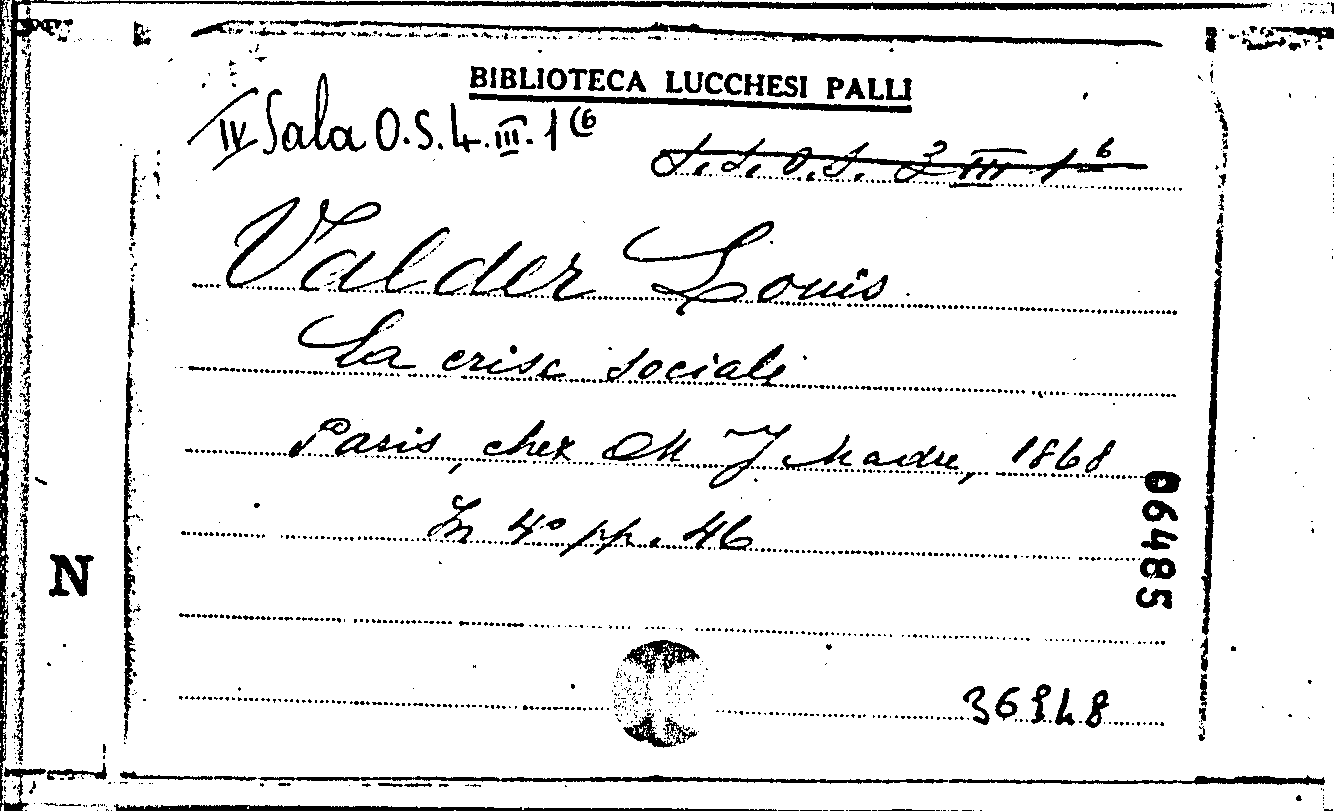 BIBLIOTECA LUCCHESI PALLI
IV Sala O.S.4.III.1(6
S.S.O.S. 3 III 1 6
Valder Louis
La crise sociale
Paris, chez M J Madre, 1868
In 4° pp. 46
N
66485